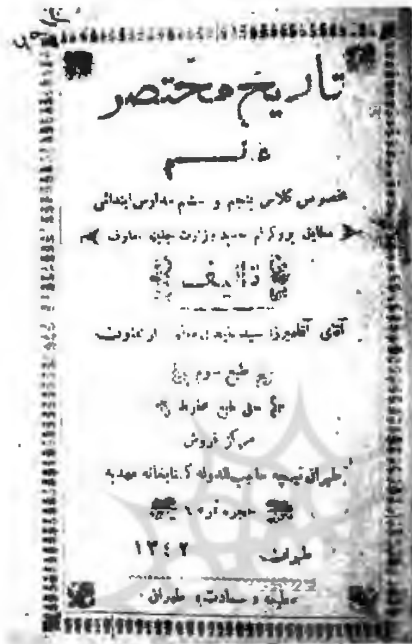 تاریخ مختصر
عالم
مخصوص کلاس پنجم و ششم مدارس ابتدائی
مطابق پروگرام جدید وزارت جلیله معارف
تألیف
آقای آقامیرزا سید
طبع سوم
حق طبع محفوظ
مرکز فروش
طهران تیمچه حاجب‌الدوله کتابخانه مهدیه
حجره نمره ٦
طهران
١٣٤٢
مطبعه سعادت طهران